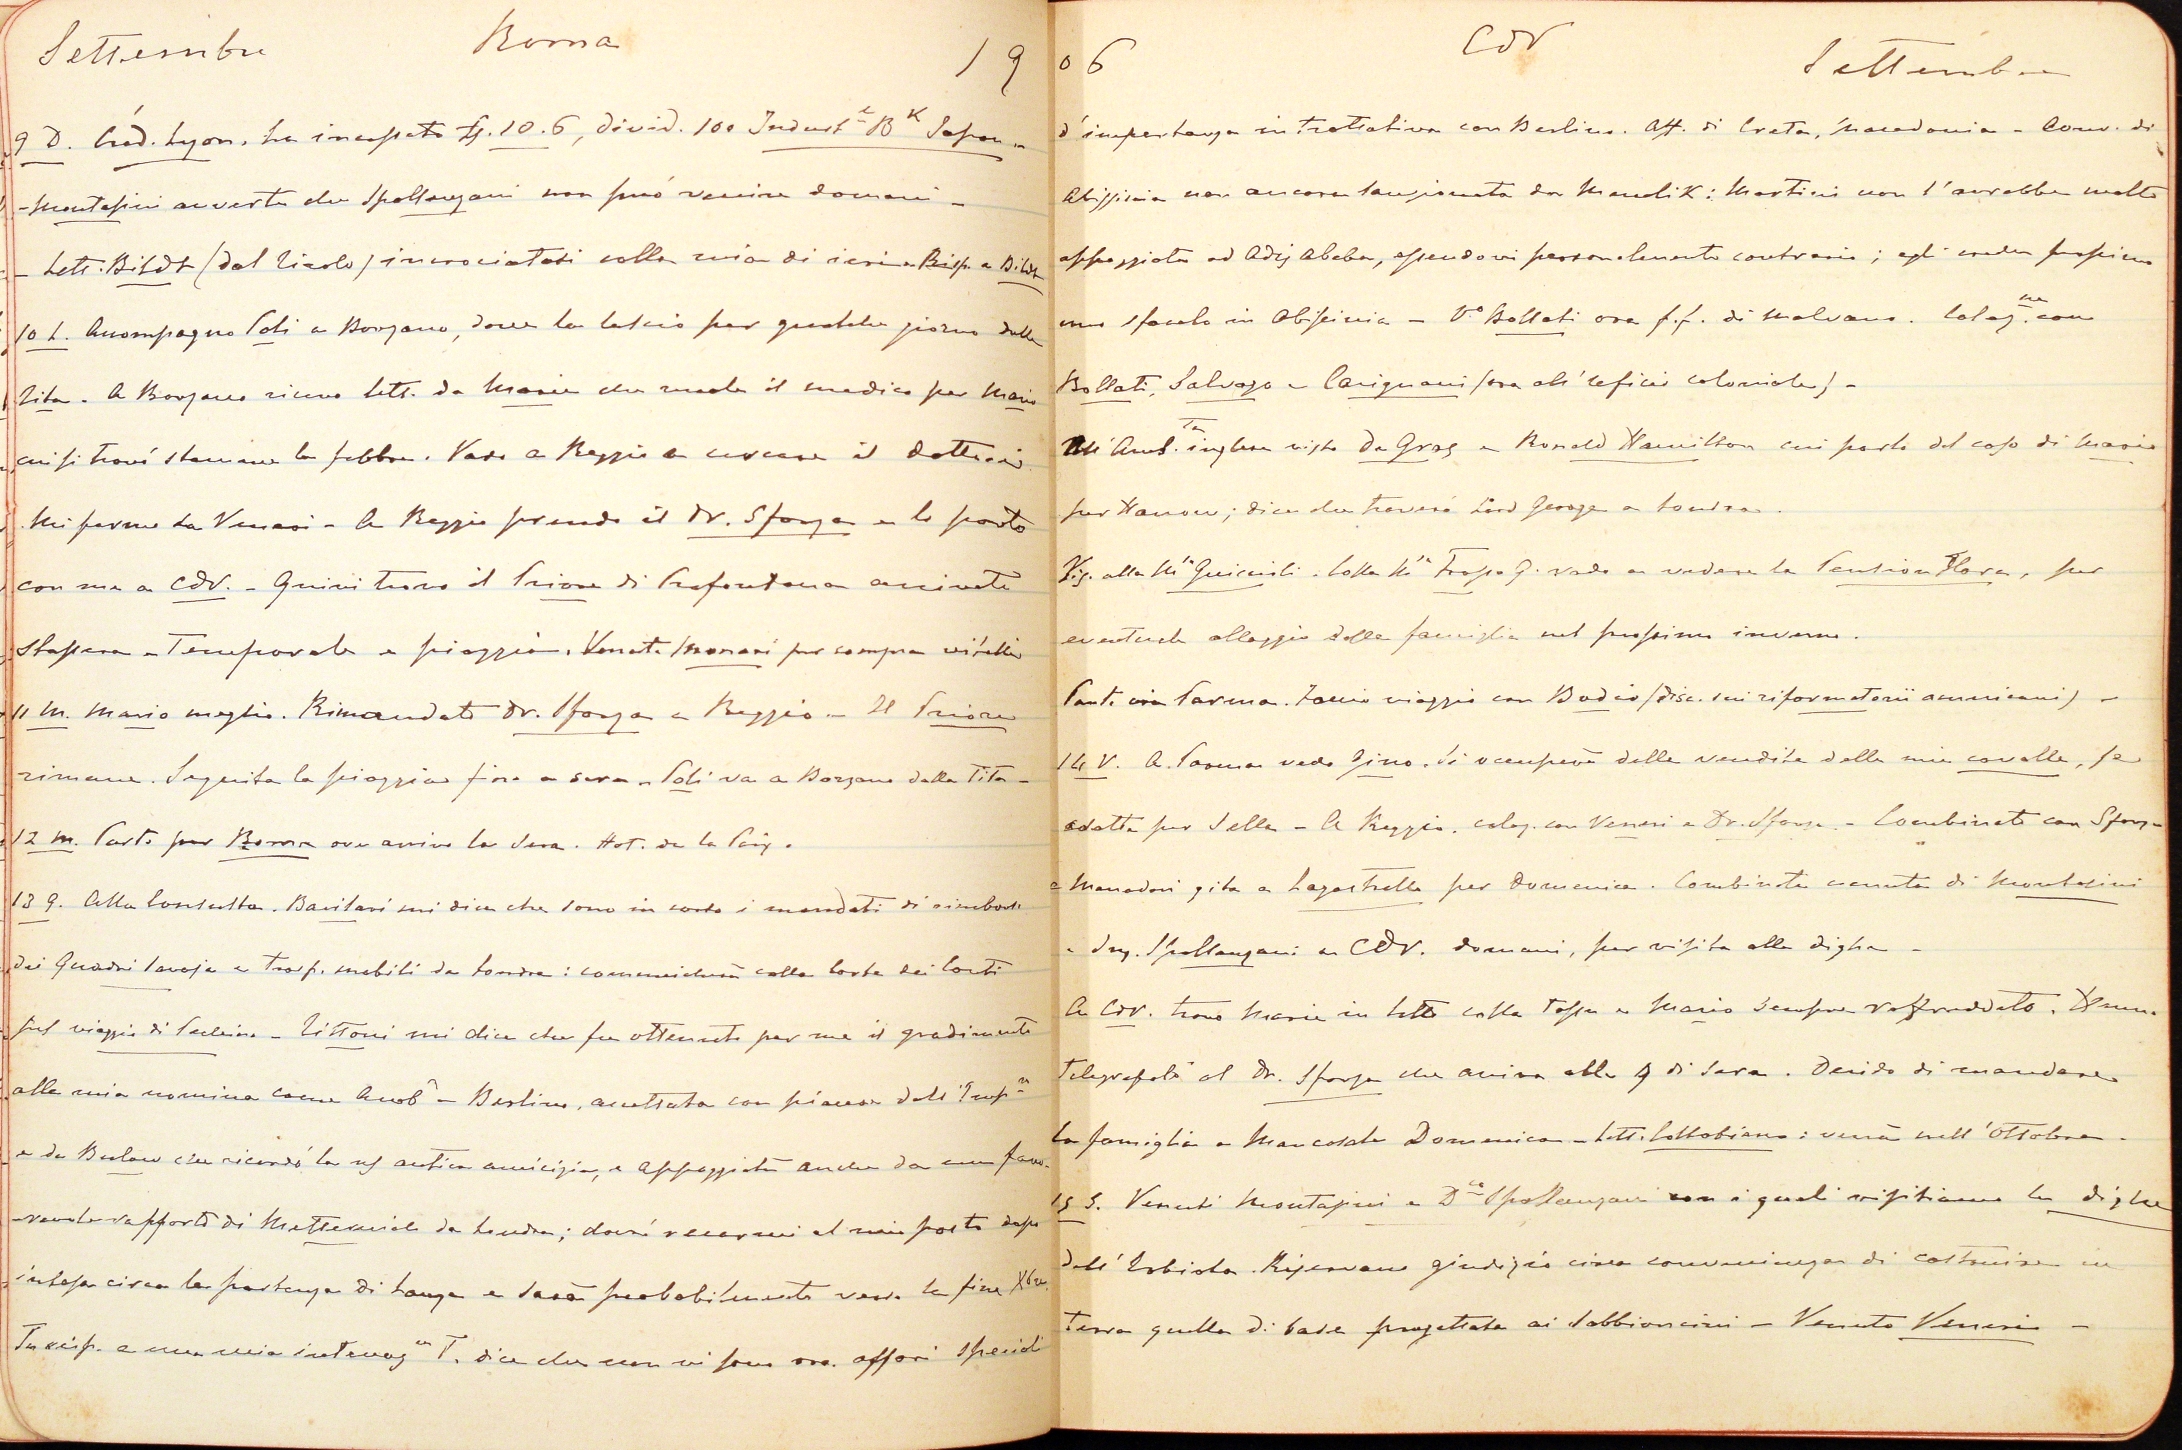 Settembre Roma 19
9 D. Créd. Lyon. ha incassato £. 10.6, divid. 100 Indust.e Bk Japan -
- Montasini avverte che Spallanzani non può venire domani -
- Lett. Bildt (dal Tirolo) incrociatasi colla mia di ieri - Risp. a Bildt
10 L. Accompagno Poli a Borzano, dove la lascio per qualche giorno dalla
Tita. A Borzano ricevo lett. da Marie che vuole il medico per Mario
cui si trovò stamane la febbre. Vado a Reggio a cercare il dottore
Mi fermo da Veneri - A Reggio prendo il Dr. Sforza e lo porto
con me a CdV. - Quivi trovo il Priore di Trefontane arrivato
stassera - Temporale e pioggia. Venuto Monari per compra vitelli
11 M. Mario meglio. Rimandato Dr. Sforza a Reggio - Il Priore
rimane. Seguita la pioggia fino a sera. Poli va a Borzano dalla Tita -
12 M. Parto per Roma ove arrivo la sera. Hot. de la Paix.
13 G. Alla Consulta. Barilari mi dice che sono in corso i mandati di rimborso
dei Quadri Savoja e Trasp. mobili da Londra: comunicherà colla Corte dei Conti
pel viaggio di Pechino - Tittoni mi dice che fu ottenuto per me il gradimento
alla mia nomina come Amb.re a Berlino, accettata con piacere dall'Imp.re
e da Bulow che ricordò la ns antica amicizia, e appoggiata anche da un favo-
revole rapporto di Metternich da Londra; dovrò recarmi al mio posto dopo
intesa circa la partenza di Lanza e sarà probabilmente verso la fine Xbre.
In risp. a una mia interrog.ne T. dice che non vi sono ora affari speciali
06 CdV Settembre
d'importanza in trattativa con Berlino. Aff. di Creta, Macedonia - Conv. di
Abissinia non ancora sanzionata da Menelik: Martini non l'avrebbe molto
appoggiata ad Adis Abeba, essendovi personalmente contrario; egli crede prossimo
uno sfacelo in Abissinia - V.o Bollati ora f.f. di Malvano. Colaz.ne con
Bollati, Salvago e Carignani (ora all'Uficio coloniale) -
All'Amb.ta inglese visto De Gras e Ronald Hamilton cui parlo del caso di Mario
per Harrow; dice che troverò Lord George a Londra.
Vis. alla M.sa Guiccioli. Colla M.sa Trasp G. vado a vedere la Pension Flora, per
eventuale alloggio della famiglia nel prossimo inverno.
Parto via Parma. Faccio viaggio con Bodio (disc. sui riformatorii americani) -
14 V. A Parma vedo Gino. Si occuperà della vendita della mia cavalla, se
adatta per sella - A Reggio. colaz. con Veneri e Dr. Sforza - Combinato con Sforza
e Manodori gita a Lagastrello per Domenica. Combinata venuta di Montasini
e Ing. Spallanzani a CdV. domani, per visita alle dighe -
A CdV. trovo Marie in letto colla tosse e Mario sempre raffreddato. Hanno
telegrafato al Dr. Sforza che arriva alle 9 di sera. Decido di mandare
la famiglia a Mancasale Domenica - Lett. Collobiano: verrà nell'ottobre.
15 S. Venuti Montasini e D.co Spallanzani con i quali visitiamo le dighe
dell'Erbiola. Riservano giudizio circa convenienza di costruire in
terra quella di base progettata ai Sabbioncini - Venuto Veneri -